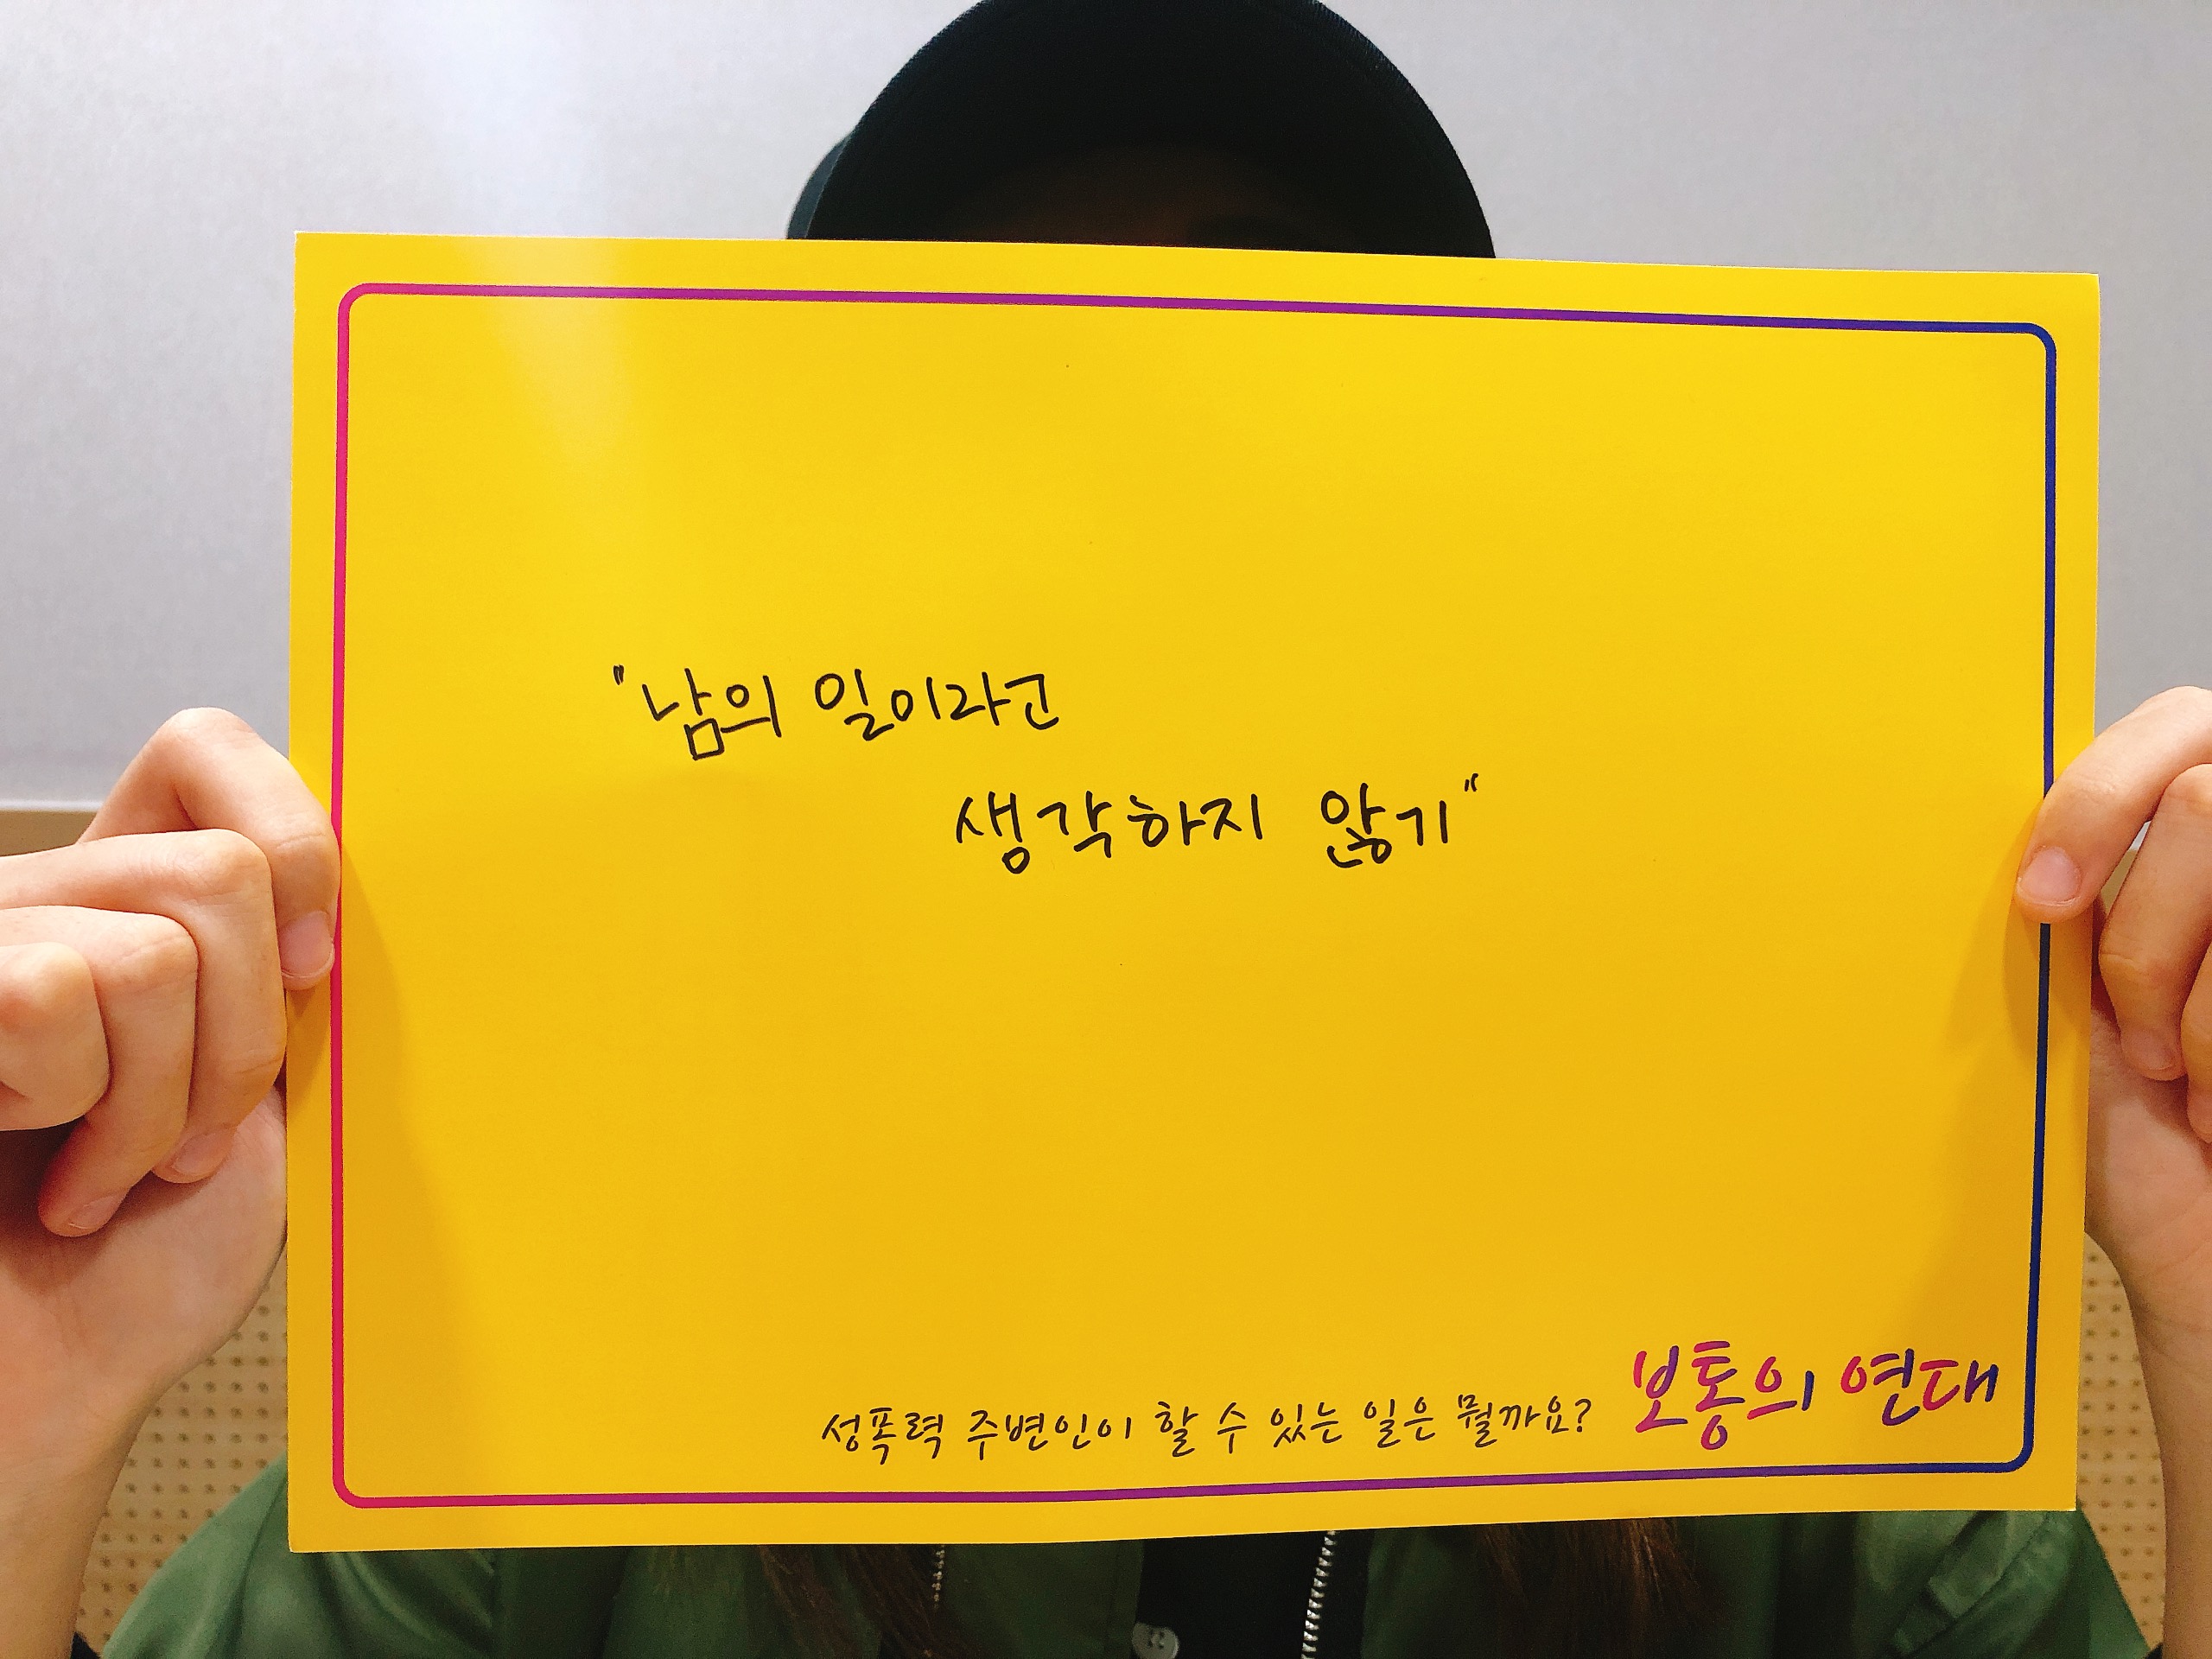 "남의 일이라고
생각하지 않기"
성폭력 주변인이 할 수 있는 일은 뭘까요? 보통의 연대